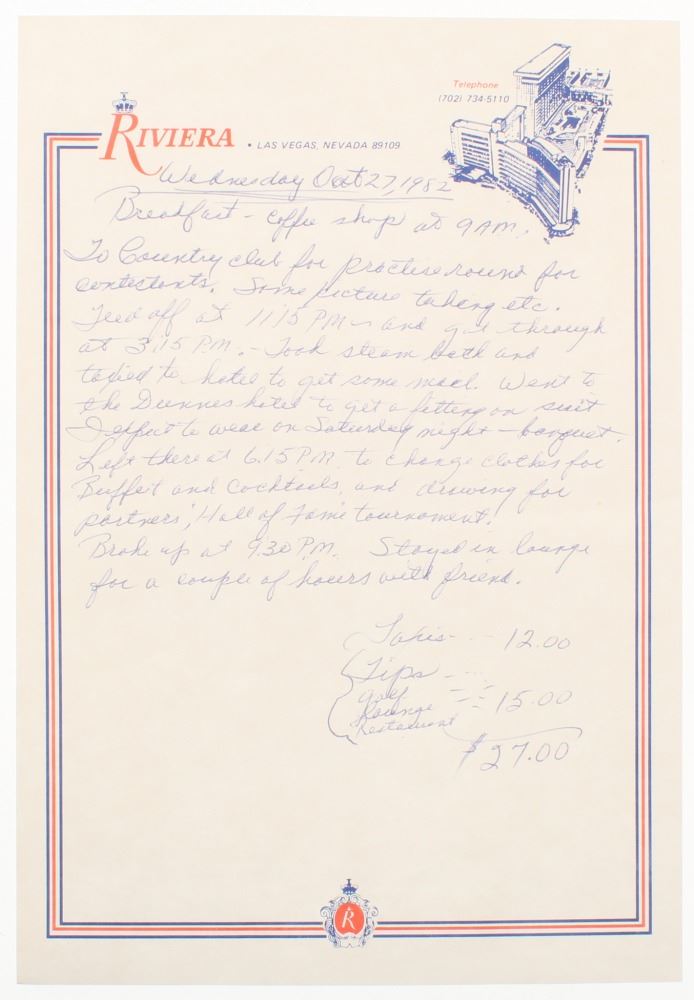 Telephone
(702) 734-5110
RIVIERA • LAS VEGAS, NEVADA 89109
Wednesday Oct 27, 1982
Breakfast - coffee shop at 9 AM.
To Country club for practise round for
contestants. Some picture taking etc.
Teed off at 11:15 PM - and got through
at 3:15 P.M. - Took steam bath and
taxied to hotel to get some mail. Went to
the Dunnes hotel to get a fitting on suit
I expect to wear on Saturday night - banquet.
Left there at 6:15 P.M. to change clothes for
Buffet and Cocktails, and drawing for
partners, Hall of Fame tournament.
Broke up at 9:30 P.M. Stayed in lounge
for a couple of hours with friend.
Taxis - - - 12.00
Tips - - -
golf
Lounge - - - 15.00
Restaurant
$27.00
R